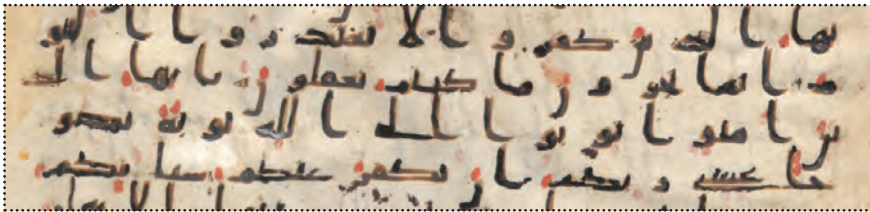 يها الذين كفروا لا تعتذروا اليو
م انما تجزون ما كنتم تعملون يايها الذ
ين امنوا توبوا الى الله توبة نصو
حا عسى ربكم ان يكفر عنكم سياتكم